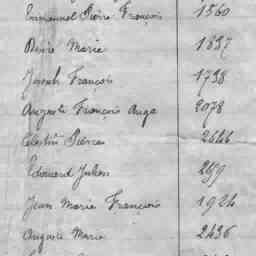 Emmanuel Pierre François 1560
Marie 1837
Joseph François 1738
Auguste François Ange 2078
Célestin Pierre 2646
Edouard Julien 259
Jean Marie François 1924
Auguste Marie 2436